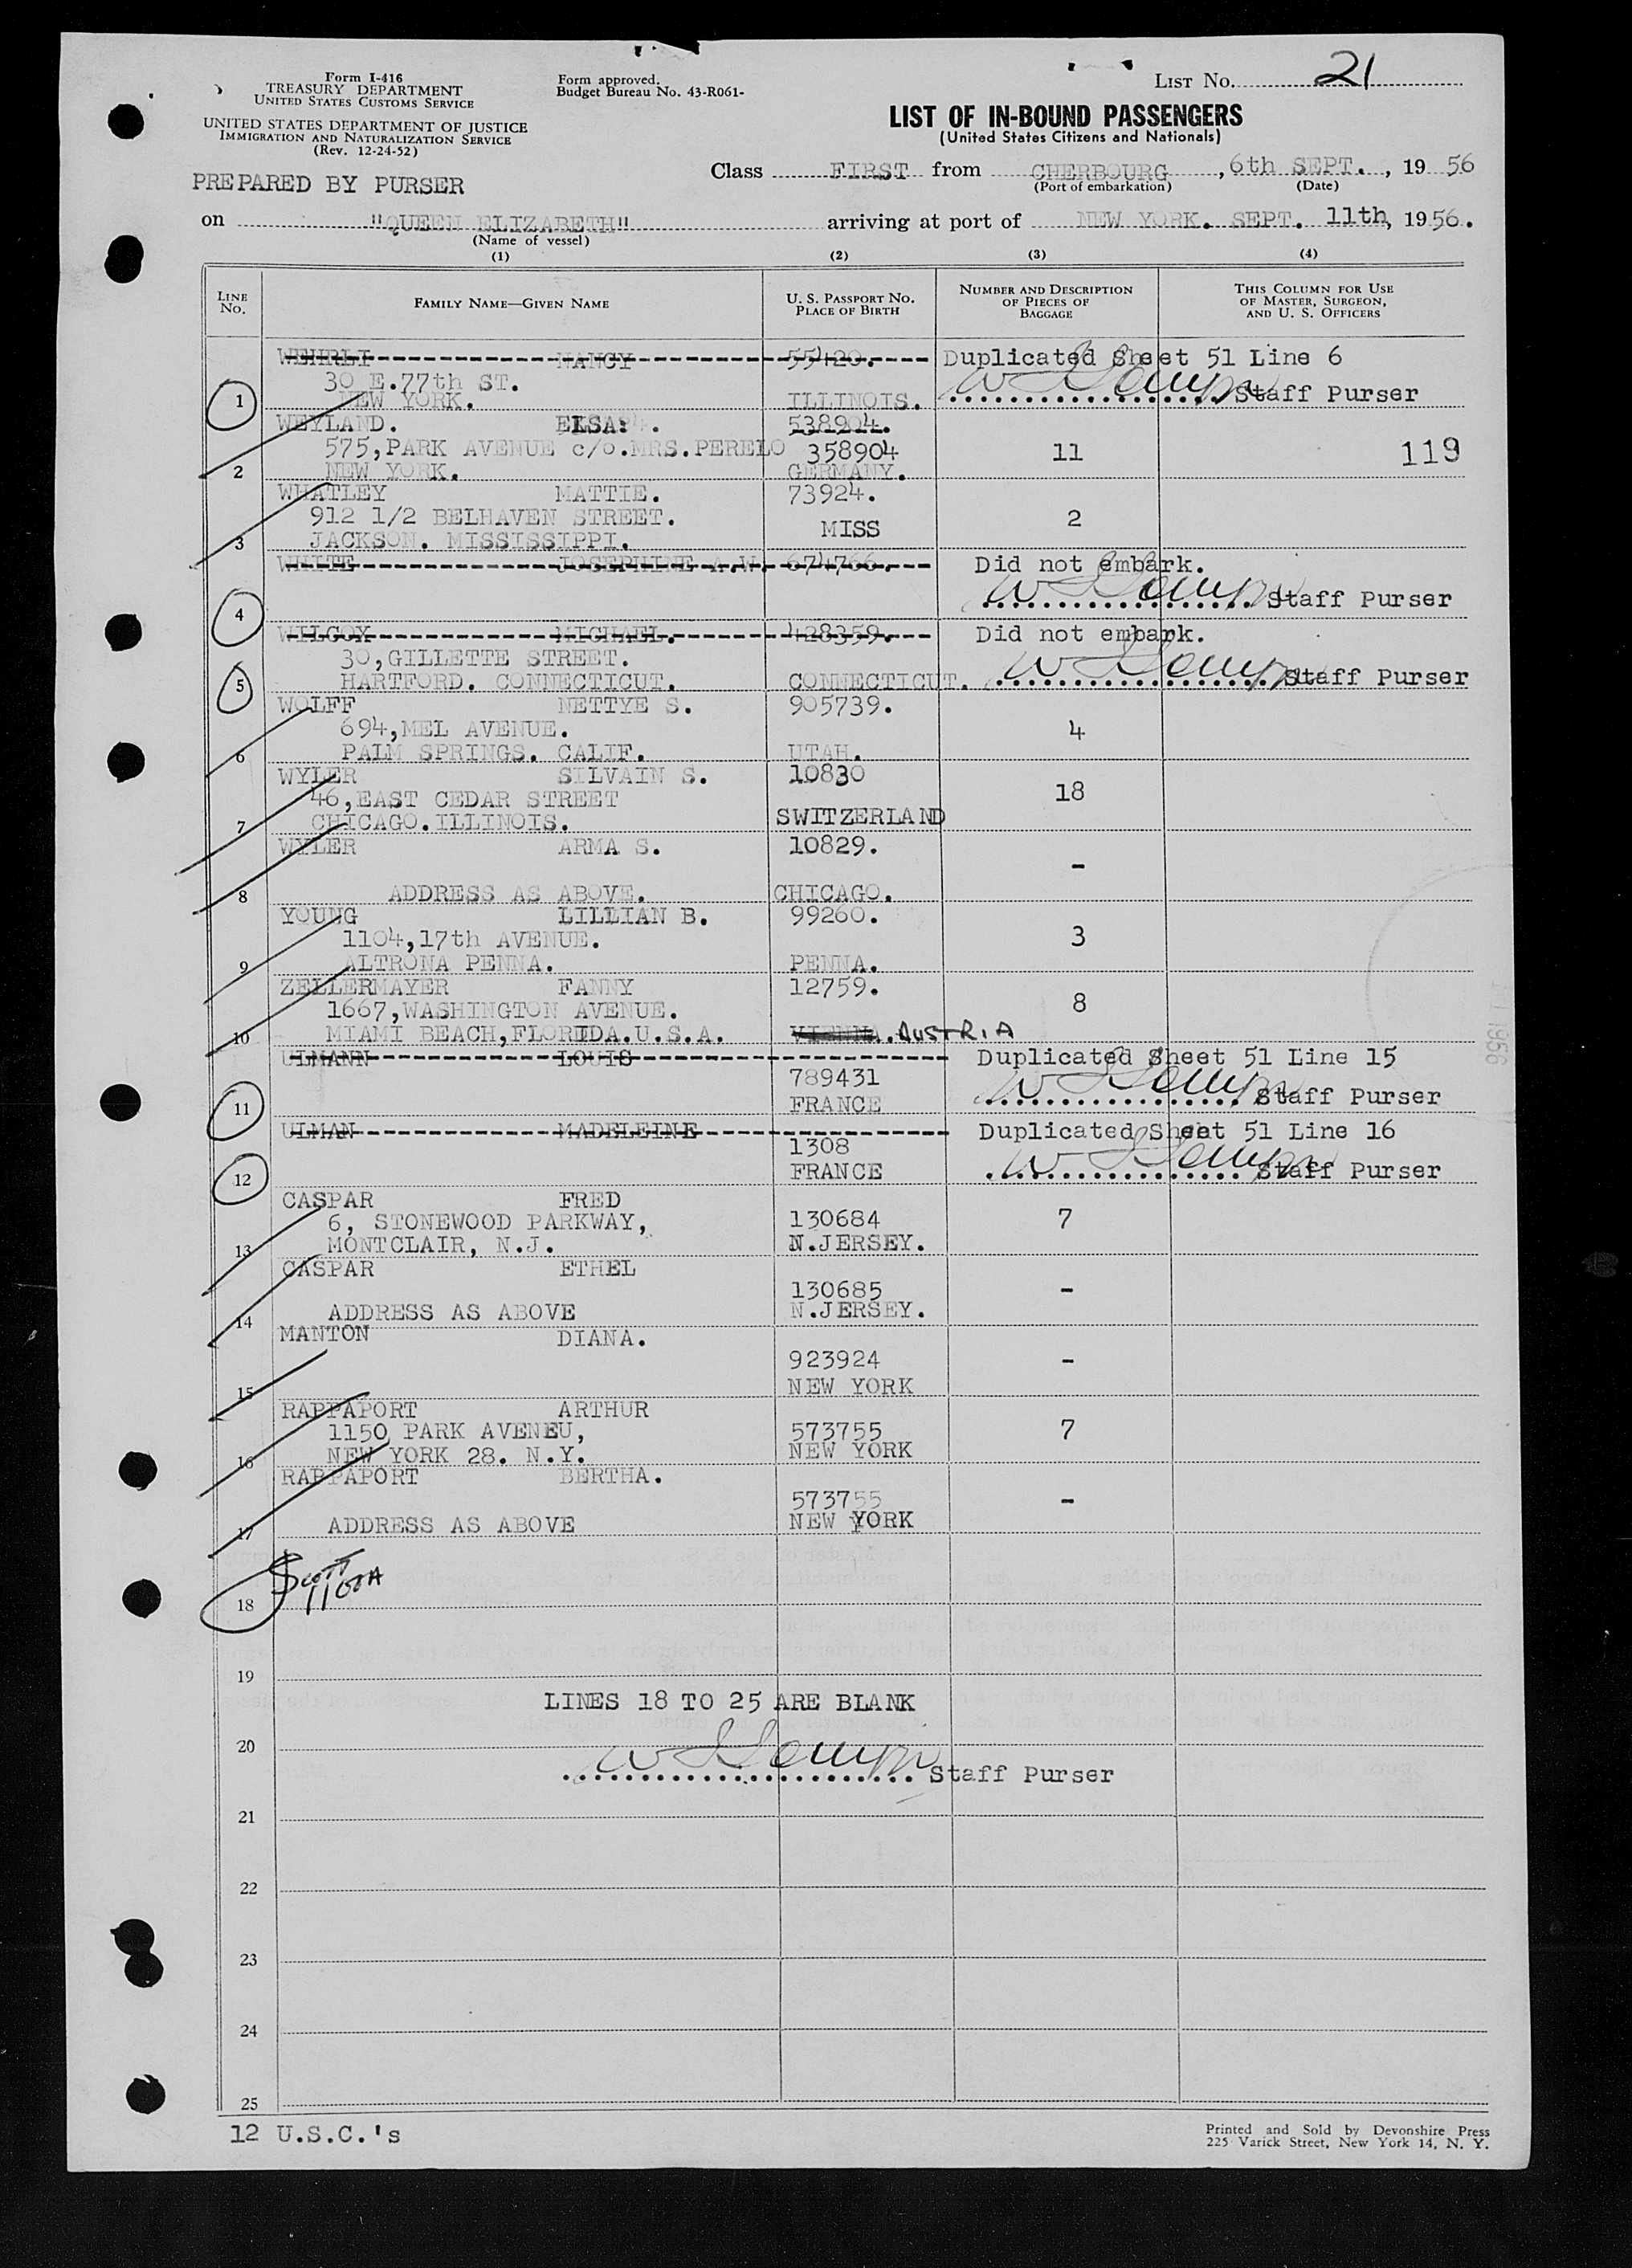 Form I-416
TREASURY DEPARTMENT
UNITED STATES CUSTOMS SERVICE
UNITED STATES DEPARTMENT OF JUSTICE
IMMIGRATION AND NATURALIZATION SERVICE
(Rev. 12-24-52)
PREPARED BY PURSER
Form approved.
Budget Bureau No. 43-R061-
LIST No. 21
LIST OF IN-BOUND PASSENGERS
(United States Citizens and Nationals)
Class FIRST from CHERBOURG, 6th SEPT., 19 56
(Port of embarkation) (Date)
on "QUEEN ELIZABETH" arriving at port of NEW YORK. SEPT. 11th, 1956.
(Name of vessel)
(1) (2) (3) (4)
LINE No. FAMILY NAME—GIVEN NAME U. S. PASSPORT No. PLACE OF BIRTH NUMBER AND DESCRIPTION OF PIECES OF BAGGAGE THIS COLUMN FOR USE OF MASTER, SURGEON, AND U. S. OFFICERS
WEHRLI NANCY 55420. Duplicated Sheet 51 Line 6
30 E.77th ST.
1 NEW YORK. ILLINOIS. Staff Purser
WEYLAND. ELSA. 538904.
575,PARK AVENUE c/o.MRS.PERELO 358904 11 119
2 NEW YORK. GERMANY.
WHATLEY MATTIE. 73924.
912 1/2 BELHAVEN STREET. MISS 2
3 JACKSON. MISSISSIPPI.
WHITE JOSEPHINE A.W. 674766. Did not embark.
4 Staff Purser
WILCOX MICHAEL. 428359. Did not embark.
30,GILLETTE STREET.
5 HARTFORD. CONNECTICUT. CONNECTICUT. Staff Purser
WOLFF NETTYE S. 905739.
694,MEL AVENUE. 4
6 PALM SPRINGS. CALIF. UTAH.
WYLER SILVAIN S. 10830
46,EAST CEDAR STREET 18
7 CHICAGO.ILLINOIS. SWITZERLAND
WYLER ARMA S. 10829.
-
8 ADDRESS AS ABOVE. CHICAGO.
YOUNG LILLIAN B. 99260.
1104,17th AVENUE. 3
9 ALTRONA PENNA. PENNA.
ZELLERMAYER FANNY 12759.
1667,WASHINGTON AVENUE. 8
10 MIAMI BEACH,FLORIDA.U.S.A. VIENNA. AUSTRIA
ULMANN LOUIS Duplicated Sheet 51 Line 15
789431
11 FRANCE Staff Purser
ULMAN MADELEINE Duplicated Sheet 51 Line 16
1308
12 FRANCE Staff Purser
CASPAR FRED
6, STONEWOOD PARKWAY, 130684 7
13 MONTCLAIR, N.J. N.JERSEY.
CASPAR ETHEL
130685 -
14 ADDRESS AS ABOVE N.JERSEY.
MANTON DIANA.
923924 -
15 NEW YORK
RAPPAPORT ARTHUR
1150 PARK AVENEU, 573755 7
16 NEW YORK 28. N.Y. NEW YORK
RAPPAPORT BERTHA.
573755 -
17 ADDRESS AS ABOVE NEW YORK
18
19
LINES 18 TO 25 ARE BLANK
20
Staff Purser
21
22
23
24
25
12 U.S.C.'s
Printed and Sold by Devonshire Press
225 Varick Street, New York 14, N. Y.